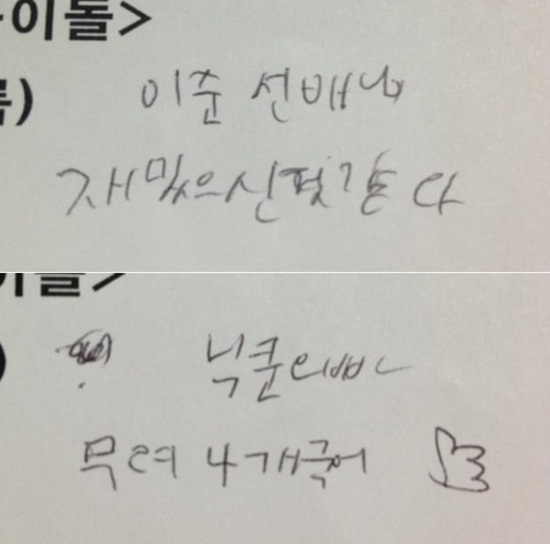 이돌>
)
이준 선배님
재밌으신것같다
이돌>
)
닉쿤오빠
무려 4개국어